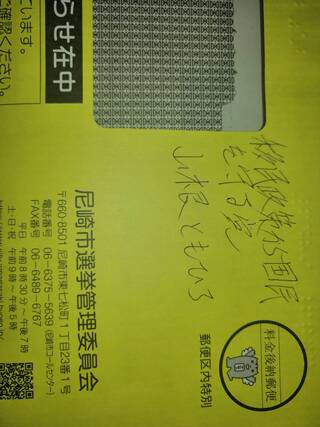 ています。
確認ください。
らせ在中
移民政策から国民
を守る党
山根ともひろ
料金後納郵便
郵便区内特別
尼崎市選挙管理委員会
〒660-8501 尼崎市東七松町1丁目23番1号
電話番号 06-6375-5639 (尼崎市コールセンター)
FAX番号 06-6489-6767
平日 午前8時30分~午後7時
土・日・祝 午前9時~午後5時